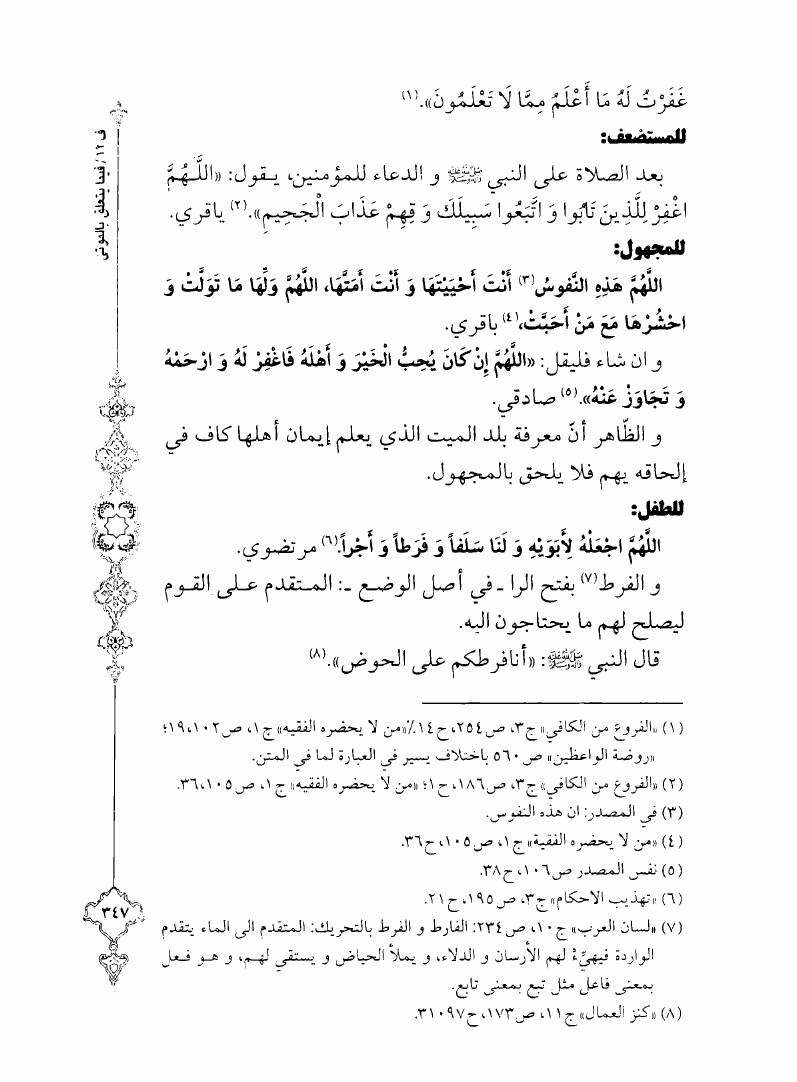 غَفَرْتُ لَهُ مَا أَعْلَمُ مِمَّا لَا تَعْلَمُونَ».(١)
للمستضعف:
بعد الصلاة على النبي ﷺ و الدعاء للمؤمنين، يـقول: «اللَّـهُمَّ
اغْفِرْ لِلَّذِينَ تَابُوا وَ اتَّبَعُوا سَبِيلَكَ وَ قِهِمْ عَذَابَ الْجَحِيمِ».(٢) ياقري.
للمجهول:
اللَّهُمَّ هَذِهِ النَّفوسُ(٣) أَنْتَ أَحْيَيْتَهَا وَ أَنْتَ أَمَتَّهَا، اللَّهُمَّ وَلِّهَا مَا تَوَلَّتْ وَ
احْشُرْهَا مَعَ مَنْ أَحَبَّتْ،(٤) باقري.
و ان شاء فليقل: «اللَّهُمَّ إِنْ كَانَ يُحِبُّ الْخَيْرَ وَ أَهْلَهُ فَاغْفِرْ لَهُ وَ ارْحَمْهُ
وَ تَجَاوَزْ عَنْهُ».(٥) صادقي.
و الظّاهر أنّ معرفة بلد الميت الذي يعلم إيمان أهلها كاف في
إلحاقه بهم فلا يلحق بالمجهول.
للطفل:
اللَّهُمَّ اجْعَلْهُ لِأَبَوَيْهِ وَ لَنَا سَلَفاً وَ فَرَطاً وَ أَجْراً.(٦) مرتضوي.
و الفرط(٧) بفتح الرا ـ في أصل الوضع ـ: المـتقدم عـلى القـوم
ليصلح لهم ما يحتاجون اليه.
قال النبي ﷺ: «أنافرطكم على الحوض».(٨)
(١) «الفروع من الكافي» ج٣، ص٢٥٤، ح١٤٪«من لا يحضره الفقيه» ج١، ص١٠٢،١٩؛
«روضة الواعظين» ص٥٦٠ باختلاف يسير في العبارة لما في المتن.
(٢) «الفروع من الكافي» ج٣، ص١٨٦، ح١؛ «من لا يحضره الفقيه» ج١، ص١٠٥،٣٦.
(٣) في المصدر: ان هذه النفوس.
(٤) «من لا يحضره الفقية» ج١، ص١٠٥، ح٣٦.
(٥) نفس المصدر ص١٠٦، ح٣٨.
(٦) «تهذيب الاحكام» ج٣، ص١٩٥، ح٢١.
(٧) «لسان العرب» ج١٠، ص٢٣٤: الفارط و الفرط بالتحريك: المتقدم الى الماء يتقدم
الواردة فيهيّءُ لهم الأرسان و الدلاء، و يملأ الحياض و يستقي لهـم، و هـو فـعل
بمعنى فاعل مثل تبع بمعنى تابع.
(٨) «كنز العمال» ج١١، ص١٧٣، ح٣١٠٩٧.
ف ١٢ / فيما يتعلق بالموتى
٣٤٧